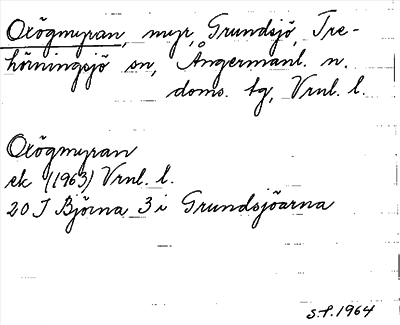 Oxögmyran, myr, Grundsjö, Tre-
hörningsjö sn, Ångermanl. n.
doms. tg, Vrnl. l.
Oxögmyran
ek (1963) Vrnl. l.
20 J Björna 3 i Grundsjöarna
S.F. 1964